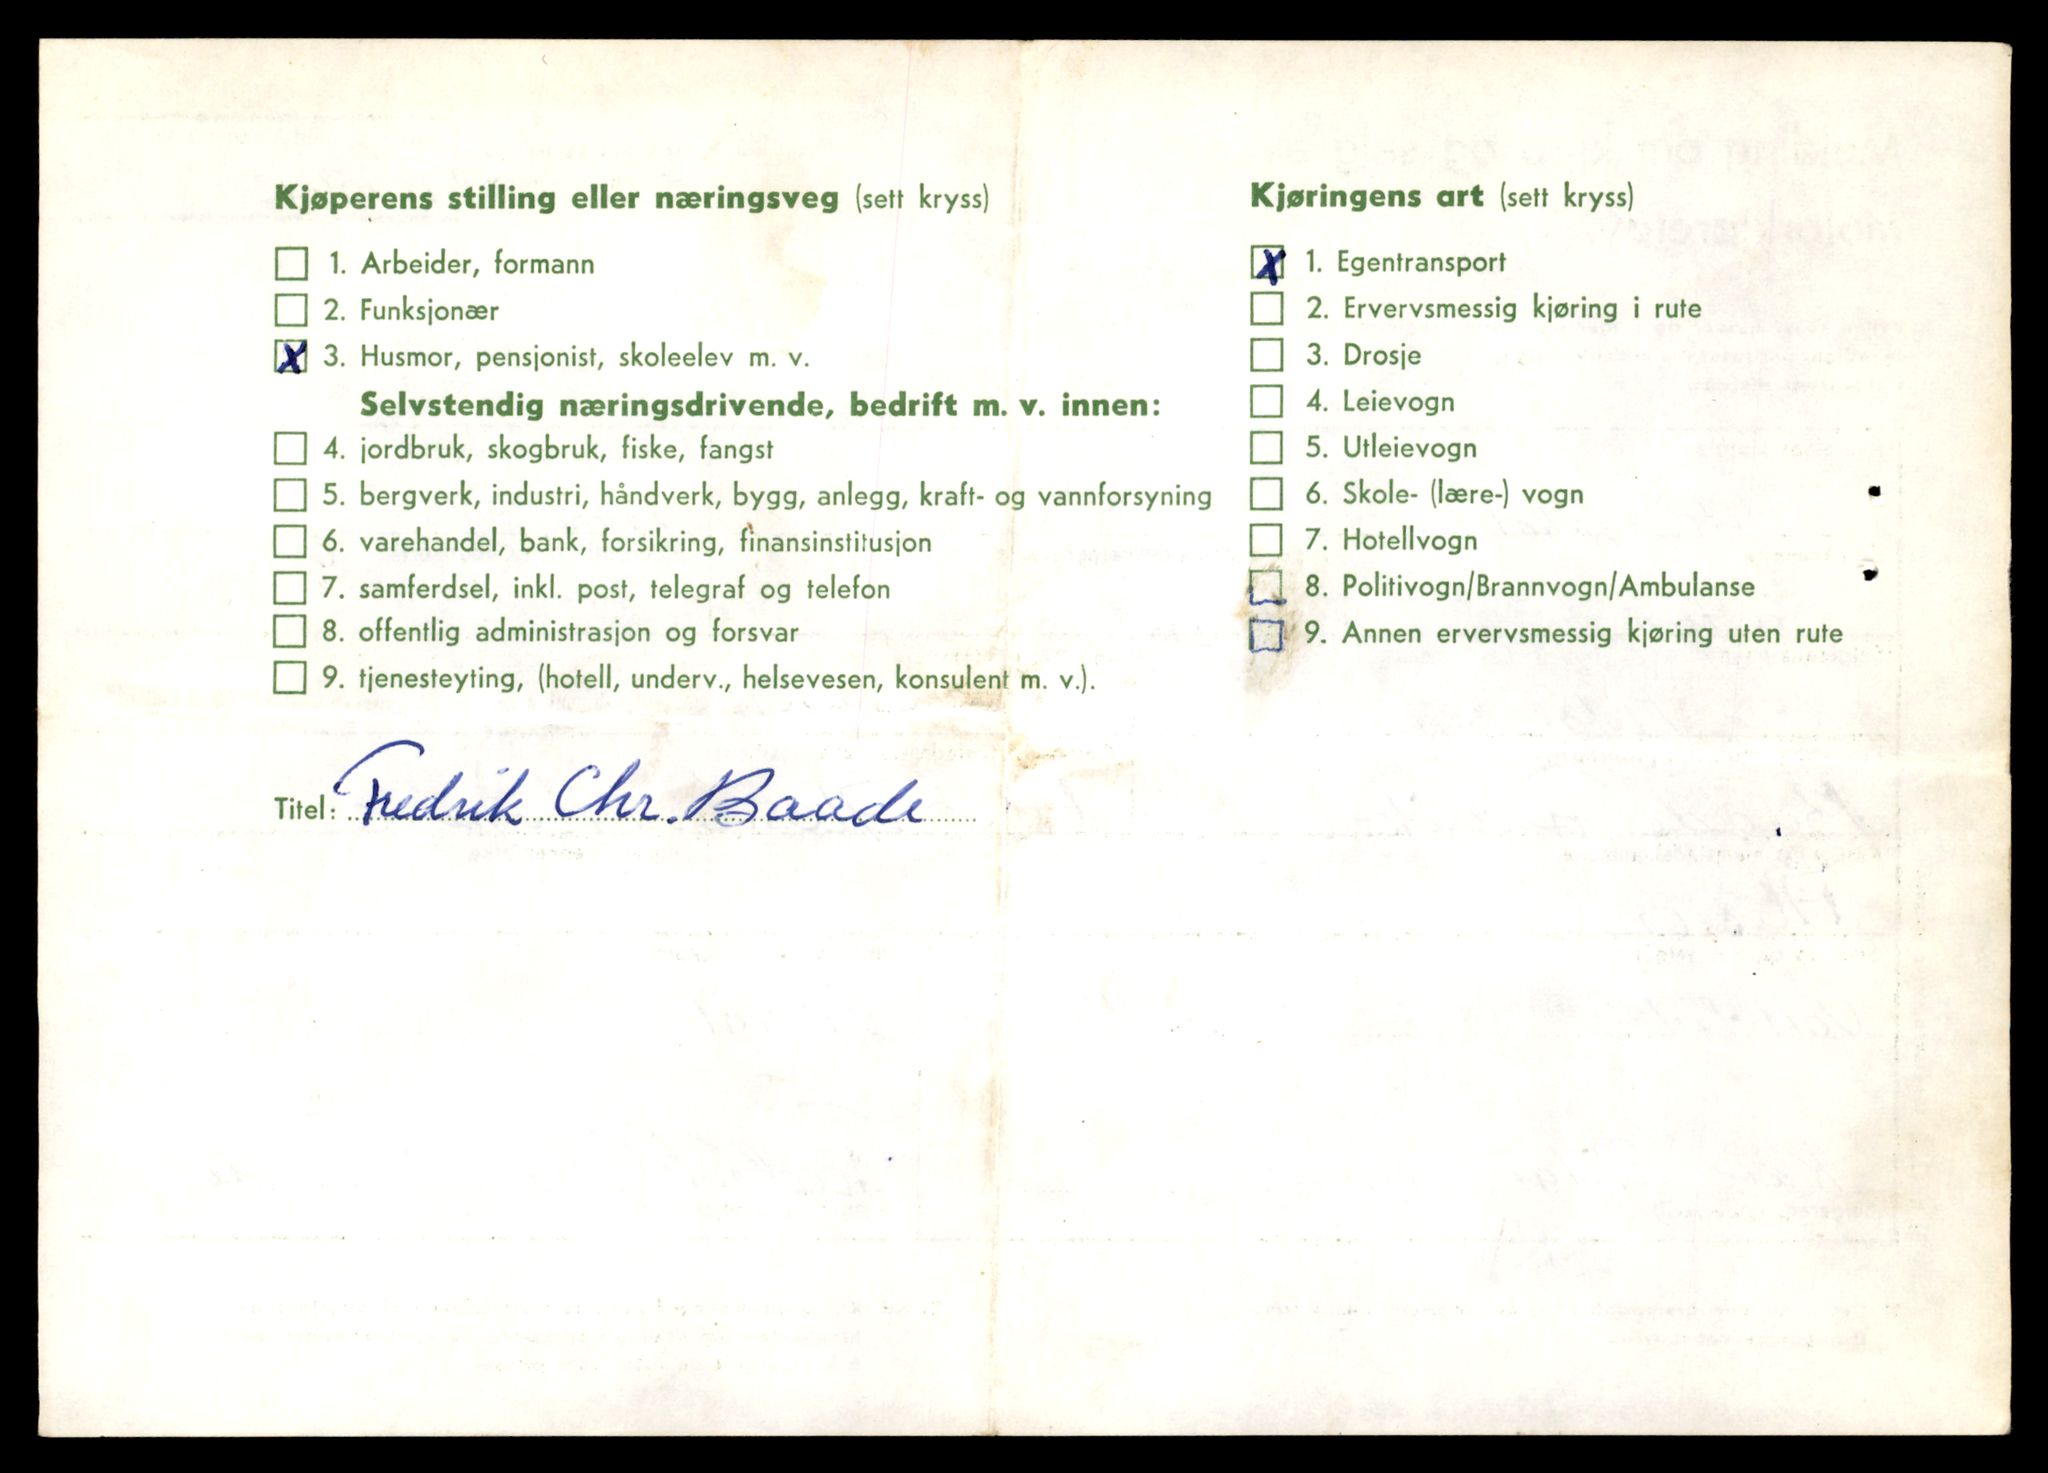 Kjøperens stilling eller næringsveg (sett kryss)
☐ 1. Arbeider, formann
☐ 2. Funksjonær
☒ 3. Husmor, pensjonist, skoleelev m. v.
Selvstendig næringsdrivende, bedrift m. v. innen:
☐ 4. jordbruk, skogbruk, fiske, fangst
☐ 5. bergverk, industri, håndverk, bygg, anlegg, kraft- og vannforsyning
☐ 6. varehandel, bank, forsikring, finansinstitusjon
☐ 7. samferdsel, inkl. post, telegraf og telefon
☐ 8. offentlig administrasjon og forsvar
☐ 9. tjenesteyting, (hotell, underv., helsevesen, konsulent m. v.).
Titel: Fredrik Chr. Baade
Kjøringens art (sett kryss)
☒ 1. Egentransport
☐ 2. Ervervsmessig kjøring i rute
☐ 3. Drosje
☐ 4. Leievogn
☐ 5. Utleievogn
☐ 6. Skole- (lære-) vogn
☐ 7. Hotellvogn
☐ 8. Politivogn/Brannvogn/Ambulanse
☐ 9. Annen ervervsmessig kjøring uten rute